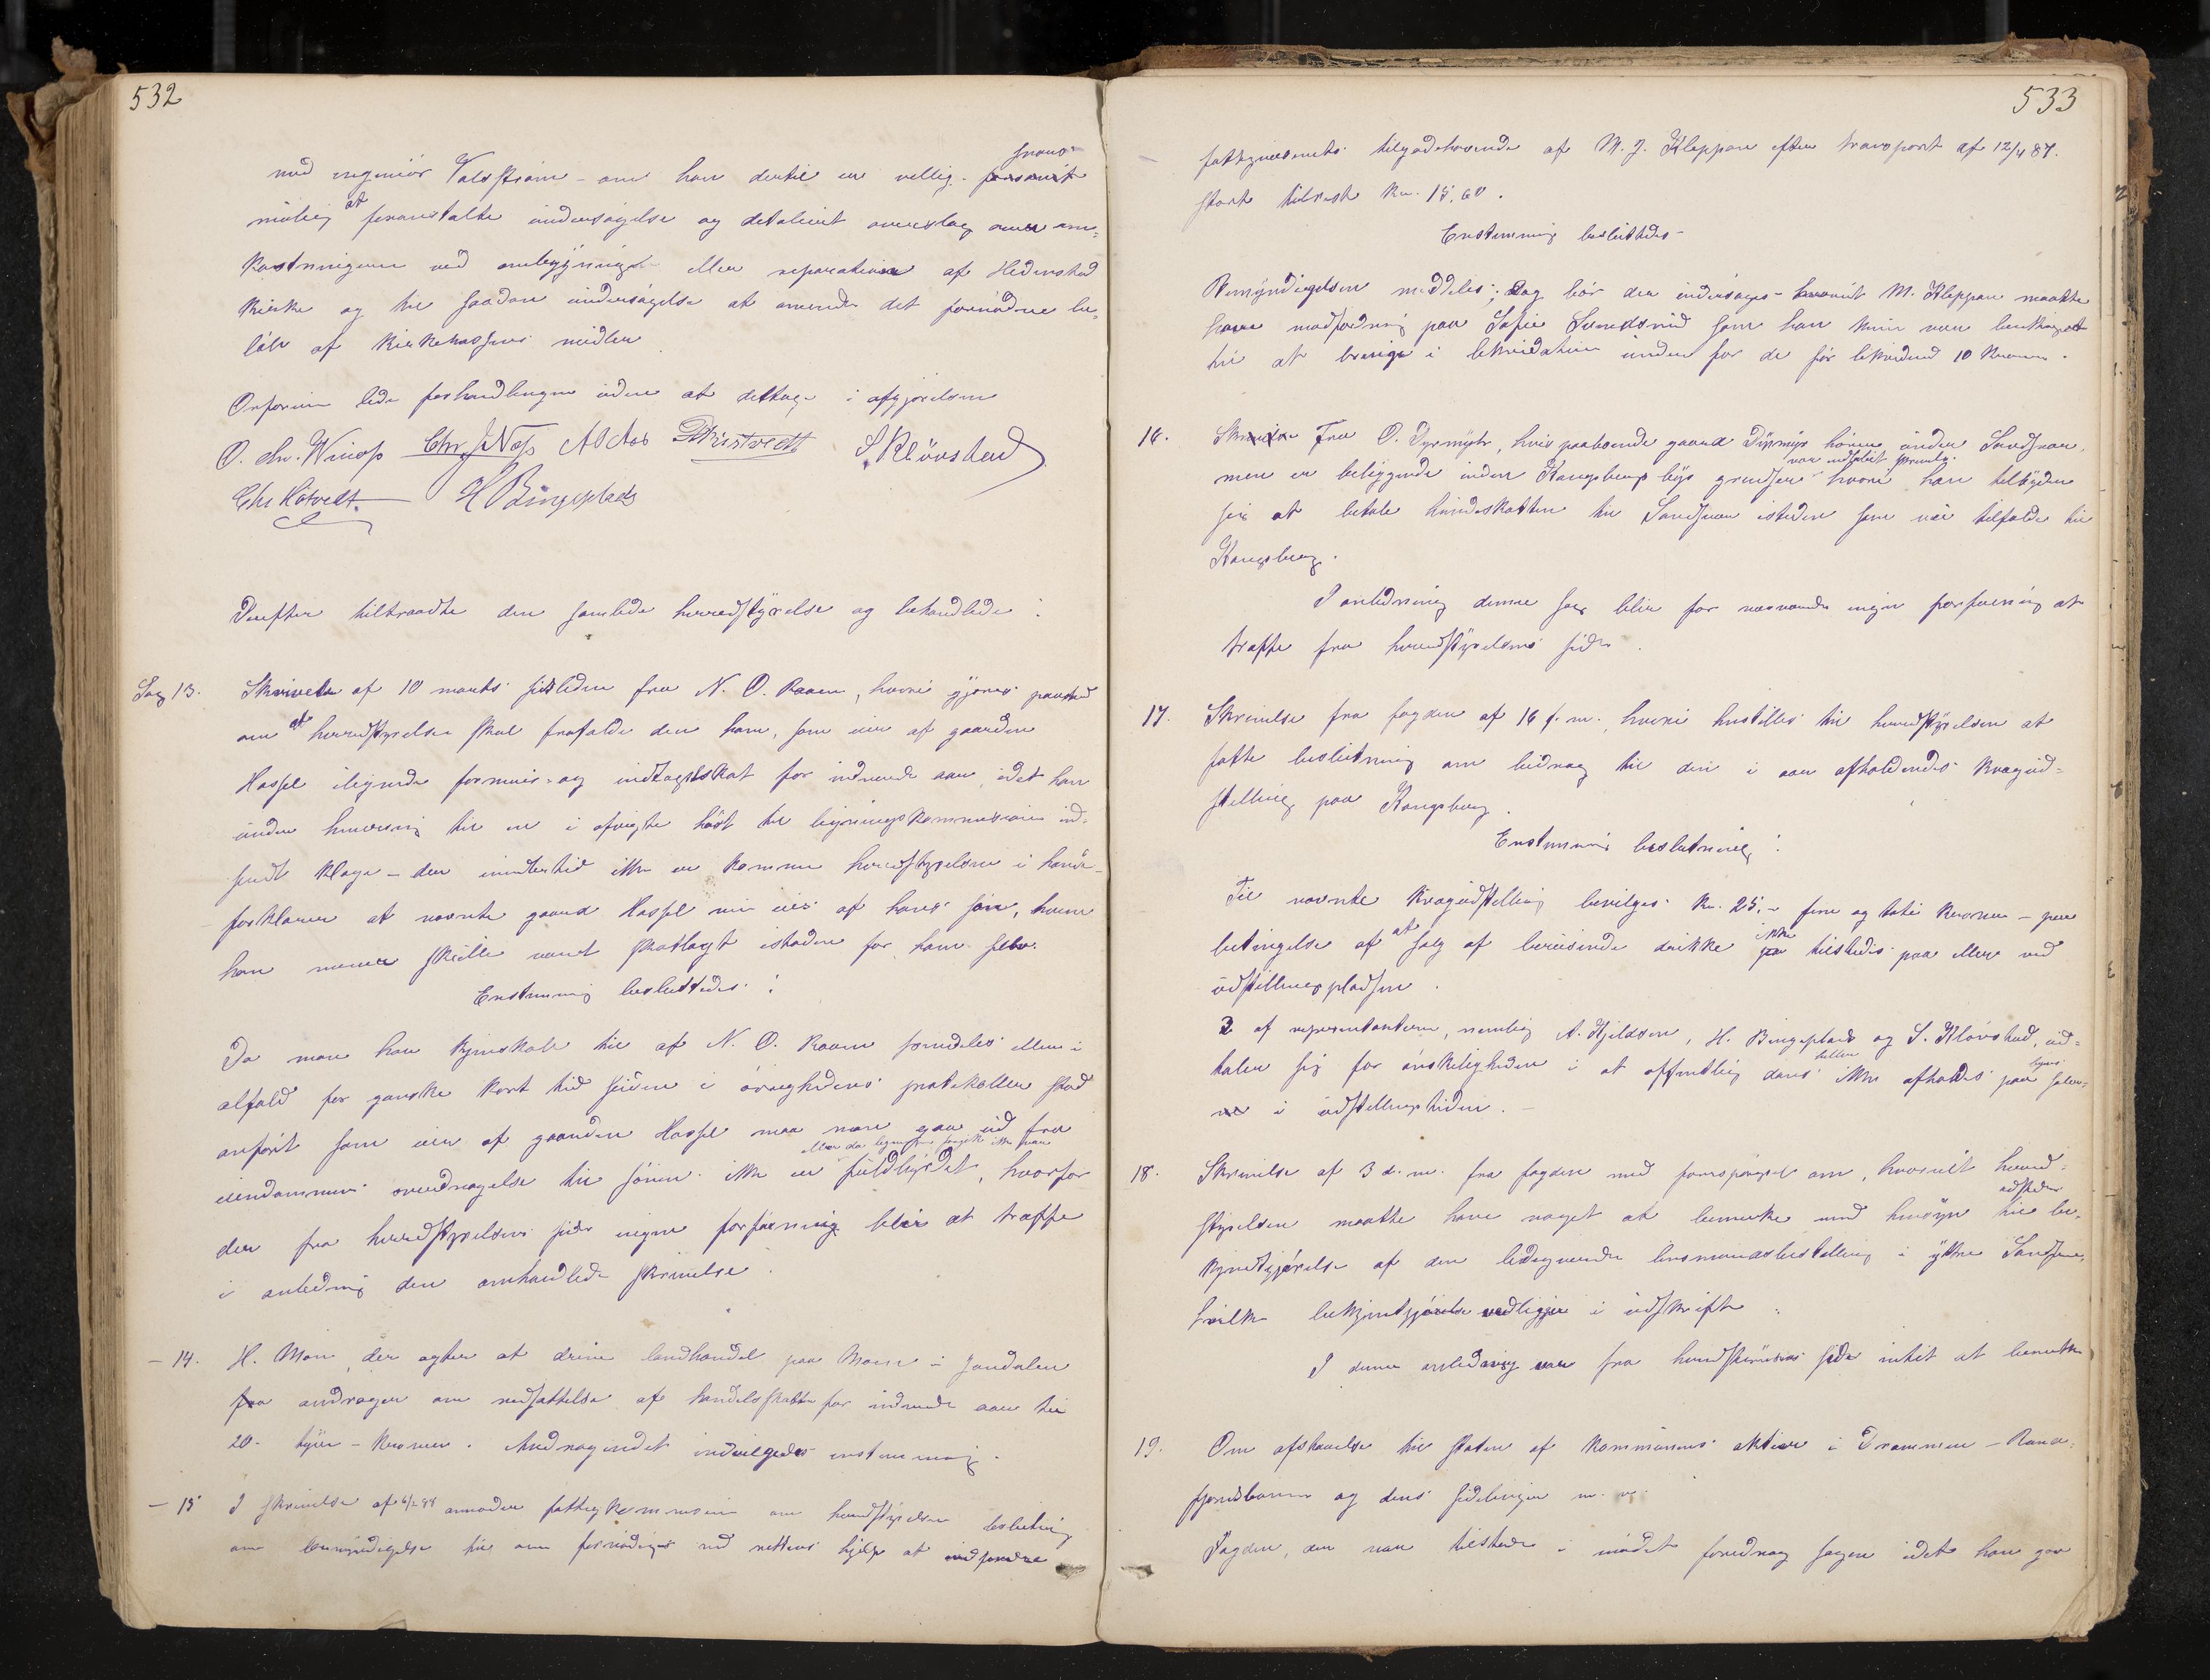 532
med ingeniör Valdstrøm - om han dertil er villig - snarest
mulig at foranstalte undersögelse og detaljeret overslag over om-
kostningerne ved ombygning eller reparation af Hedenstad
kirke og til saadan undersögelse at anvende det fornödne be-
löb af kirkekassens midler
Ordföreren lede forhandlingen uden at deltage i afgjörelsen
O. Chr. Winoss Chr. J. Nøss A. Aas Kristvedt S. Klövstad
Chr Hotvedt. H Bingeplads
Derefter tiltraadte den samlede herredsstyrelse og behandlede:
Sag 13. Skrivelse af 10 marts sidstleden fra N. O. Raaen, hvori gjöres paastand
om at herredsstyrelsen skal frafalde den ham, som eier af gaarden
Hassel ilignede formues- og indtægtsskat for indeværende aar, idet han
under henvisning til en i afvigte höst til ligningskommissionen ind-
sendt klage - der imidlertid ikke er kommen herredsstyrelsen i hænde -
forklarer at nævnte gaard Hassel nu eies af hans sön, hvem
han mener skulle været skatlagt istedenfor ham selv.
Enstemmig besluttedes:
Da man har kjendskab til at N. O. Raaen fremdeles eller i
alfald for ganske kort tid siden i övrighedens protokoller stod
anfört som eier af gaarden Hassel maa man gaa ud fra at
eller da ligningen foregik ikke var
eiendommens overdragelse til sönnen ikke er fuldbyrdet, hvorfor
der fra herredsstyrelsens side ingen forföining blir at træffe
i anledning den omhandlede skrivelse.
- 14. H. Moen, der agter at drive landhandel paa Moen i Jondalen
andrager om nedsættelse af handelsskatten for indeværende aar til
20 - tyve - kroner. Andragendet indvilgedes enstemmig.
- 15 I skrivelse af 6/2 88 anmoder fattigkommissionen om herredsstyrelsens beslutning
om bemyndigelse til om fornödiges ved rettens hjælp at indfordre
533
fattigvæsenets tilgodehavende af M. J. Kleppen efter transport af 12/4 87.
stort tilrest Kr. 15,60.
Enstemmig besluttedes -
Bemyndigelsen meddeles; dog bör der undersöges hvorvidt M. Kleppen maatte
have modfordring paa Sofie som han kun var berettiget
til at bringe i likvidation inden for de för likviderede 10 kroner.
16. Fra O. Dyrmyr, hvis paaboende gaard Dyrmyr hörer under Sandsvær,
var indlöbet skrivelse
men er beliggende inden Kongsberg bys grændser hvori han tilbyder
sig at betale hundeskatten til Sandsvær isteden som nu tilfælde til
Kongsberg.
I anledning denne sag blir for nærværende ingen forföining at
træffe fra herredsstyrelsens side.
17. Skrivelse fra fogden af 16 f. m. hvori henstilles til herredsstyrelsen at
fatte beslutning om bidrag til den i aar afholdendes kvægud-
stilling paa Kongsberg.
Enstemmig beslutning:
Til nævnte kvægudstilling bevilges kr. 25,- fem og tyve kroner - paa
betingelse af at salg af berusende drikke ikke tilstedes paa eller ved
udstillingspladsen.
3 af repræsentanterne, nemlig A. Hjeldsen, H. Bingeplads og S. Klövstad, ud-
taler sig for önskeligheden i at offentlig dans heller ikke afholdes paa byens saler-
ne i udstillingstiden. -
18. Skrivelse af 3 d. m. fra fogden med forespörgsel om, hvorvidt herreds-
styrelsen maatte have noget at bemerke med hensyn til udstedet be-
kjendtgjörelse af den ledigværende lensmandsbestilling i ytre Sandsvær,
hvilken bekjendtgjörelse vedligger i udskrift.
I denne anledning var fra herredsstyrelsens side intet at bemerke
19. Om afstaaelse til staten af kommunens aktier i Drammen - Rands-
fjordsbanen og dens sidelinjer m. v.
Fogden, der var tilstede i mödet foredrog sagen idet han gav